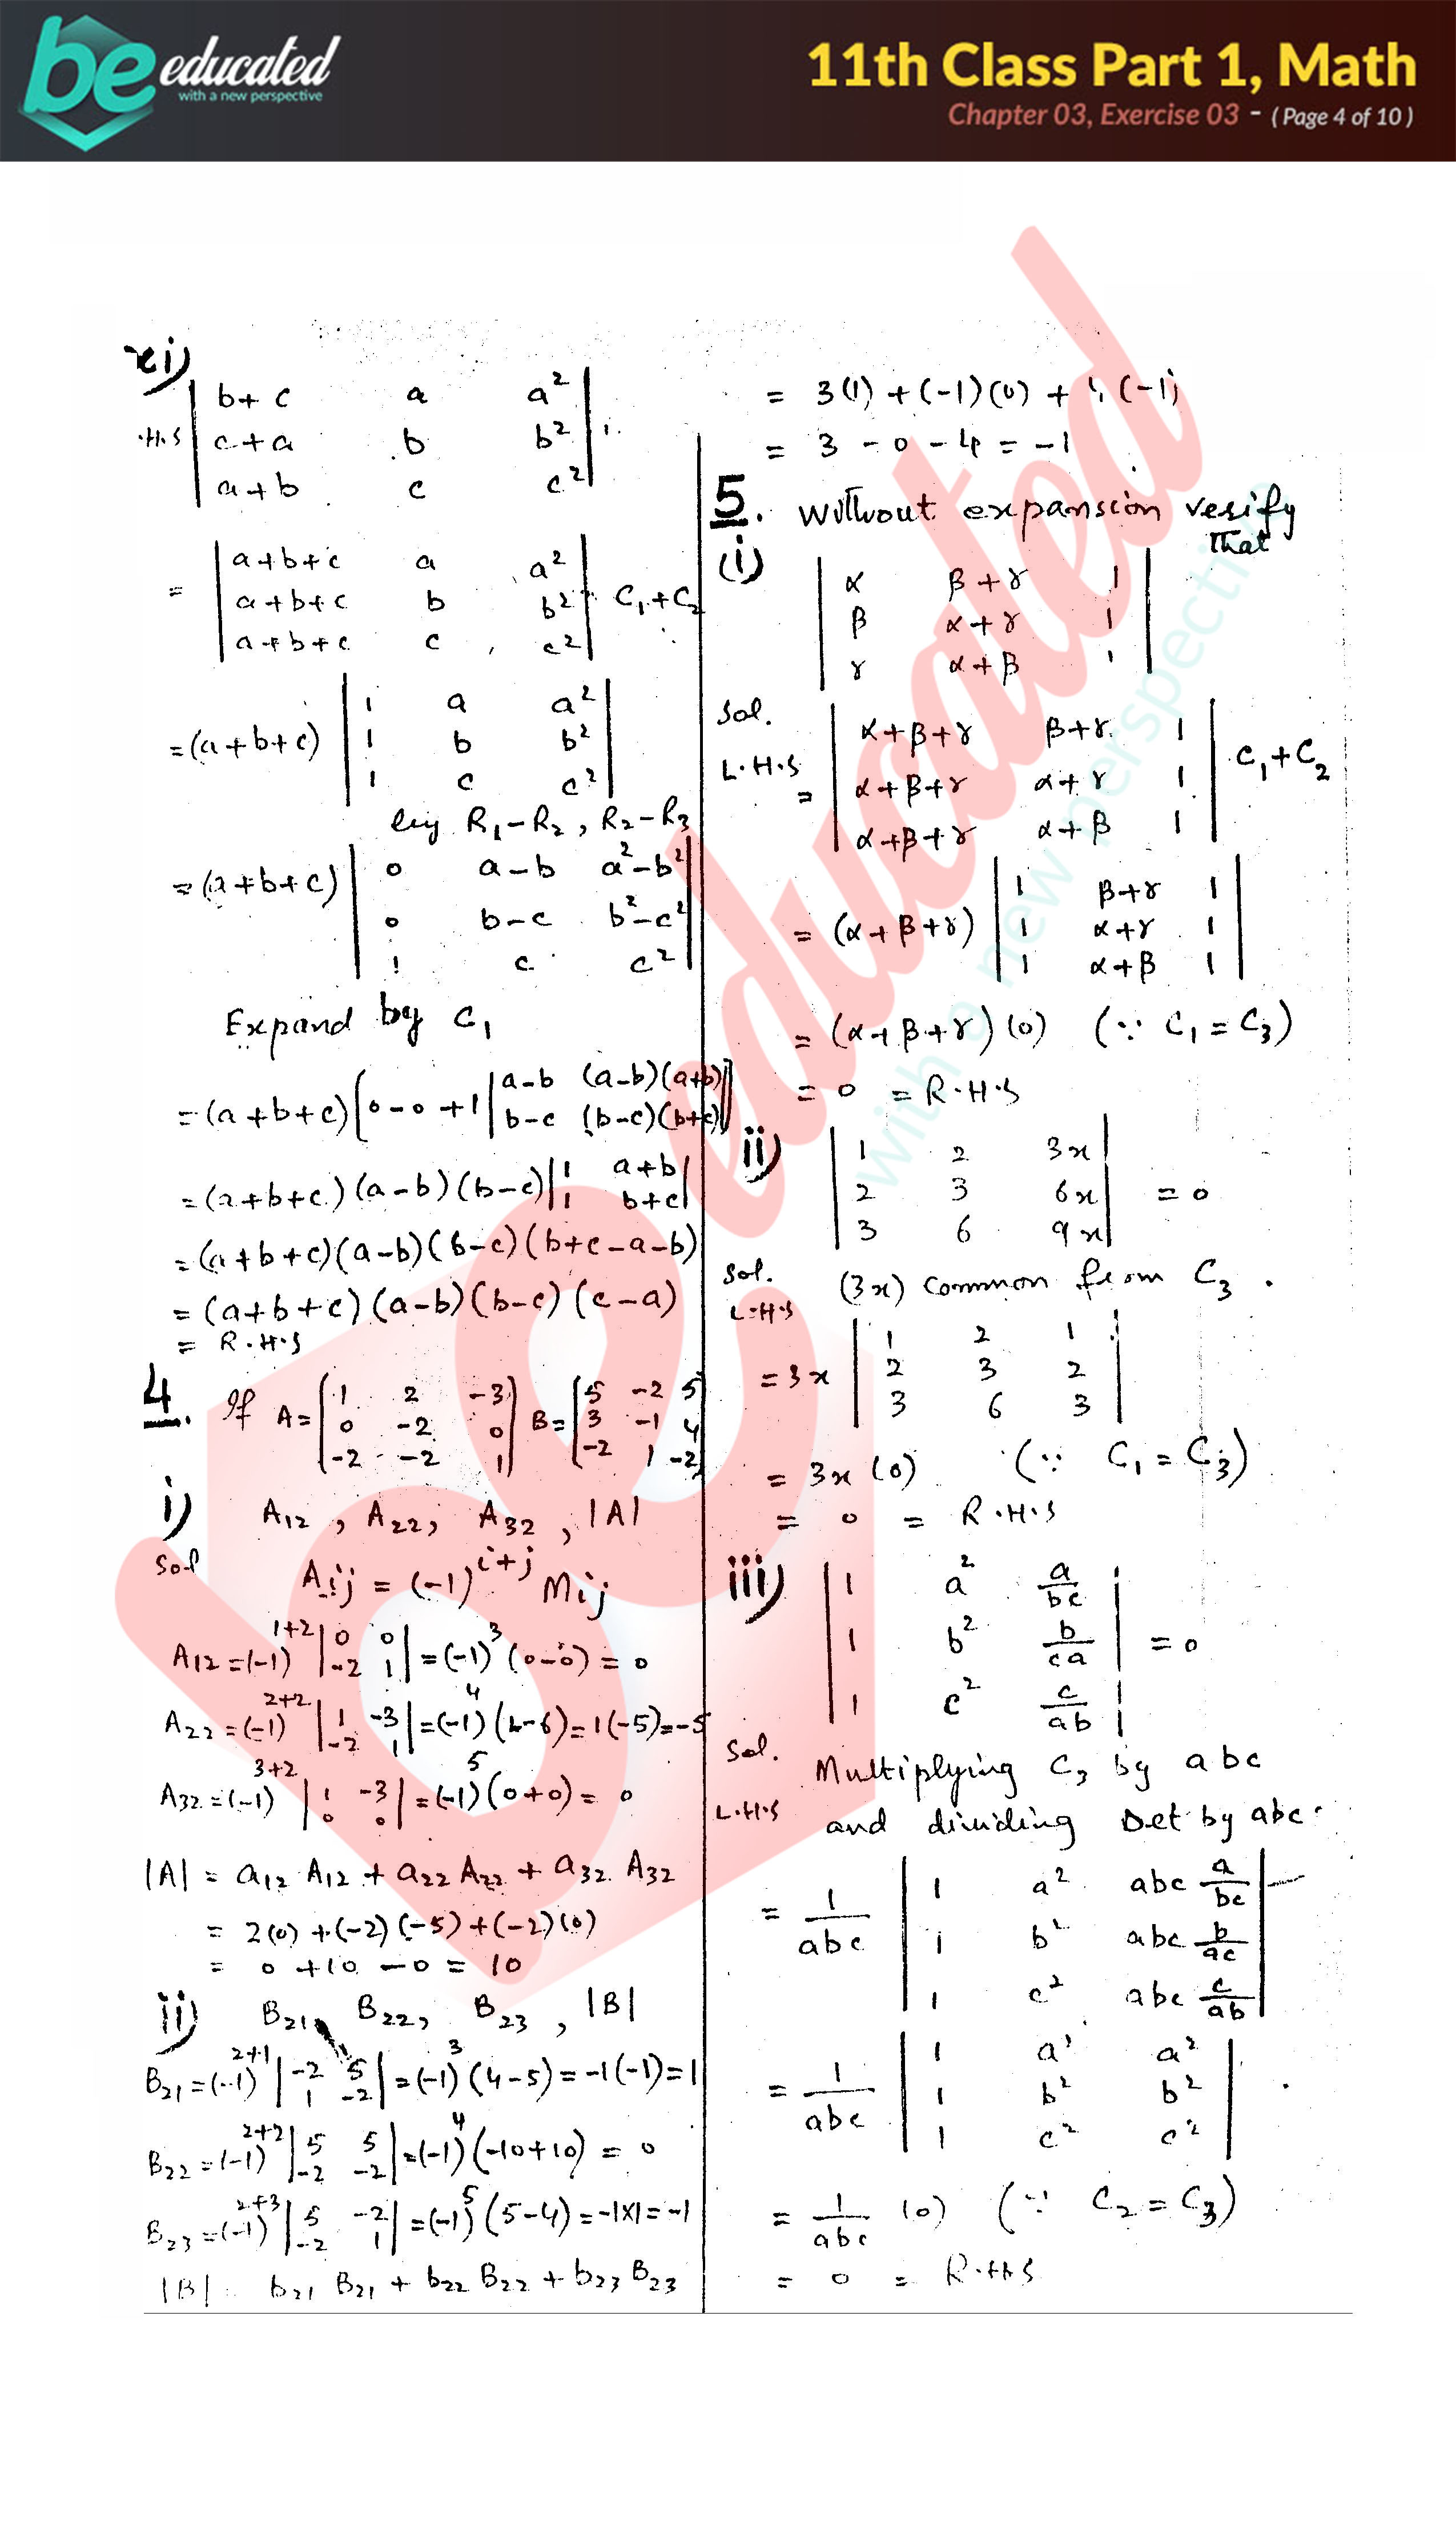 be educated
with a new perspective
11th Class Part 1, Math
Chapter 03, Exercise 03 - ( Page 4 of 10 )
xi)
.H.S | b+c a a² |
| c+a b b² |
| a+b c c² |
= | a+b+c a a² |
| a+b+c b b² | C₁+C₂
| a+b+c c c² |
=(a+b+c) | 1 a a² |
| 1 b b² |
| 1 c c² |
by R₁-R₂, R₂-R₃
=(a+b+c) | 0 a-b a²-b² |
| 0 b-c b²-c² |
| 1 c c² |
Expand by C₁
=(a+b+c)[0-0+1 | a-b (a-b)(a+b) |
| b-c (b-c)(b+c) |]
=(a+b+c)(a-b)(b-c) | 1 a+b |
| 1 b+c |
=(a+b+c)(a-b)(b-c)(b+c-a-b)
=(a+b+c)(a-b)(b-c)(c-a)
= R.H.S
4. If A= [ 1 2 -3 ] B= [ 5 -2 5 ]
[ 0 -2 0 ] [ 3 -1 4 ]
[ -2 -2 1 ] [ -2 1 -2 ]
i) A₁₂, A₂₂, A₃₂, |A|
Sol
Aij = (-1)^i+j Mij
A₁₂=(-1)^1+2 | 0 0 | =(-1)³(0-0)=0
| -2 1 |
A₂₂=(-1)^2+2 | 1 -3 | =(-1)⁴(1-6)=1(-5)=-5
| -2 1 |
A₃₂=(-1)^3+2 | 1 -3 | =(-1)⁵(0+0)=0
| 0 0 |
|A| = a₁₂ A₁₂ + a₂₂ A₂₂ + a₃₂ A₃₂
= 2(0)+(-2)(-5)+(-2)(0)
= 0+10-0=10
ii) B₂₁, B₂₂, B₂₃, |B|
B₂₁=(-1)^2+1 | -2 5 | =(-1)³(4-5)=-1(-1)=1
| 1 -2 |
B₂₂=(-1)^2+2 | 5 5 | =(-1)⁴(-10+10)=0
| -2 -2 |
B₂₃=(-1)^2+3 | 5 -2 | =(-1)⁵(5-4)=-1x1=-1
| -2 1 |
|B| b₂₁ B₂₁ + b₂₂ B₂₂ + b₂₃ B₂₃
= 3(1)+(-1)(0)+ (-1)
= 3-0-4=-1
5. Without expansion verify
that
(i) | α β+γ 1 |
| β α+γ 1 |
| γ α+β 1 |
Sol.
L.H.S = | α+β+γ β+γ 1 |
| α+β+γ α+γ 1 | C₁+C₂
| α+β+γ α+β 1 |
= (α+β+γ) | 1 β+γ 1 |
| 1 α+γ 1 |
| 1 α+β 1 |
= (α+β+γ)(0) (∵ C₁=C₃)
= 0 = R.H.S
ii) | 1 2 3x |
| 2 3 6x | = 0
| 3 6 9x |
Sol. (3x) common from C₃.
L.H.S
=3x | 1 2 1 |
| 2 3 2 |
| 3 6 3 |
= 3x(0) (∵ C₁=C₃)
= 0 = R.H.S
iii) | 1 a² a/bc |
| 1 b² b/ca | = 0
| 1 c² c/ab |
Sol. Multiplying C₃ by abc
L.H.S and dividing Det by abc.
= 1/abc | 1 a² abc a/bc |
| 1 b² abc b/ac |
| 1 c² abc c/ab |
= 1/abc | 1 a² a² |
| 1 b² b² |
| 1 c² c² |
= 1/abc (0) (∵ C₂=C₃)
= 0 = R.H.S
be educated
with a new perspective